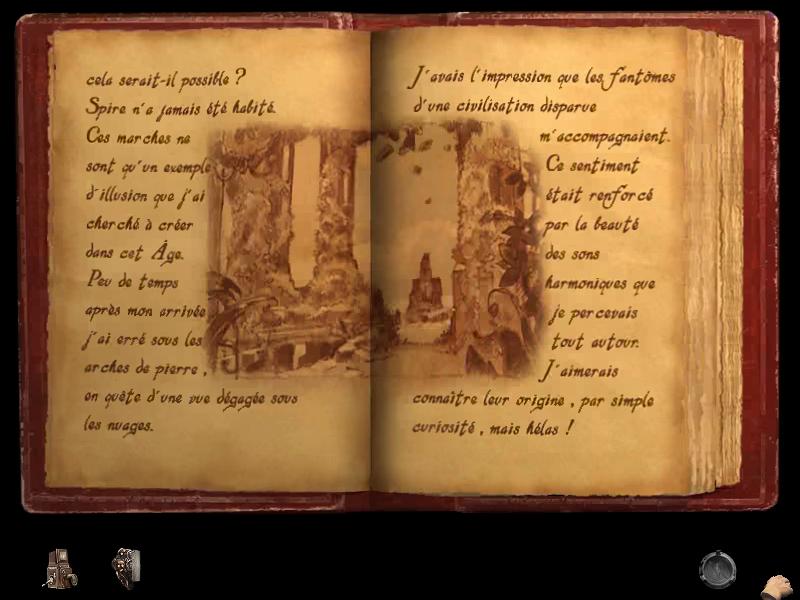 cela serait-il possible ?
Spire n'a jamais été habité.
Ces marches ne
sont qu'un exemple
d'illusion que j'ai
cherché à créer
dans cet Âge.
Peu de temps
après mon arrivée
j'ai erré sous les
arches de pierre,
en quête d'une vue dégagée sous
les nuages.
J'avais l'impression que les fantômes
d'une civilisation disparue
m'accompagnaient.
Ce sentiment
était renforcé
par la beauté
des sons
harmoniques que
je percevais
tout autour.
J'aimerais
connaître leur origine, par simple
curiosité, mais hélas !